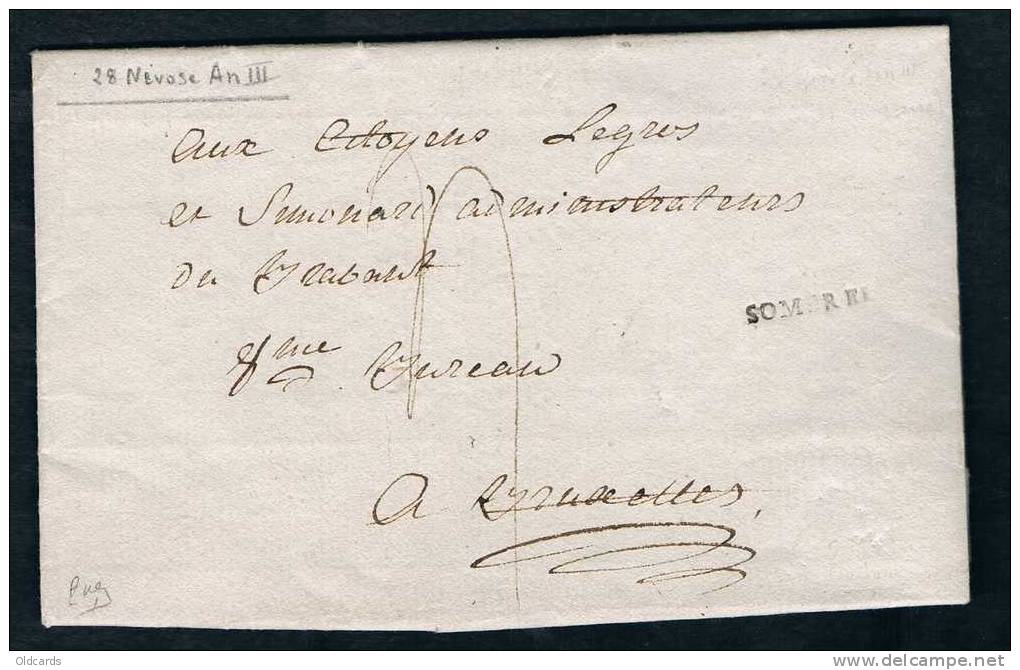 28 Nivose An III
aux Citoyens Legros
et Simonart administrateurs
du Brabant
8me Bureau
SOMBREF
a Bruxelles.
Oldcards
delcampe.net